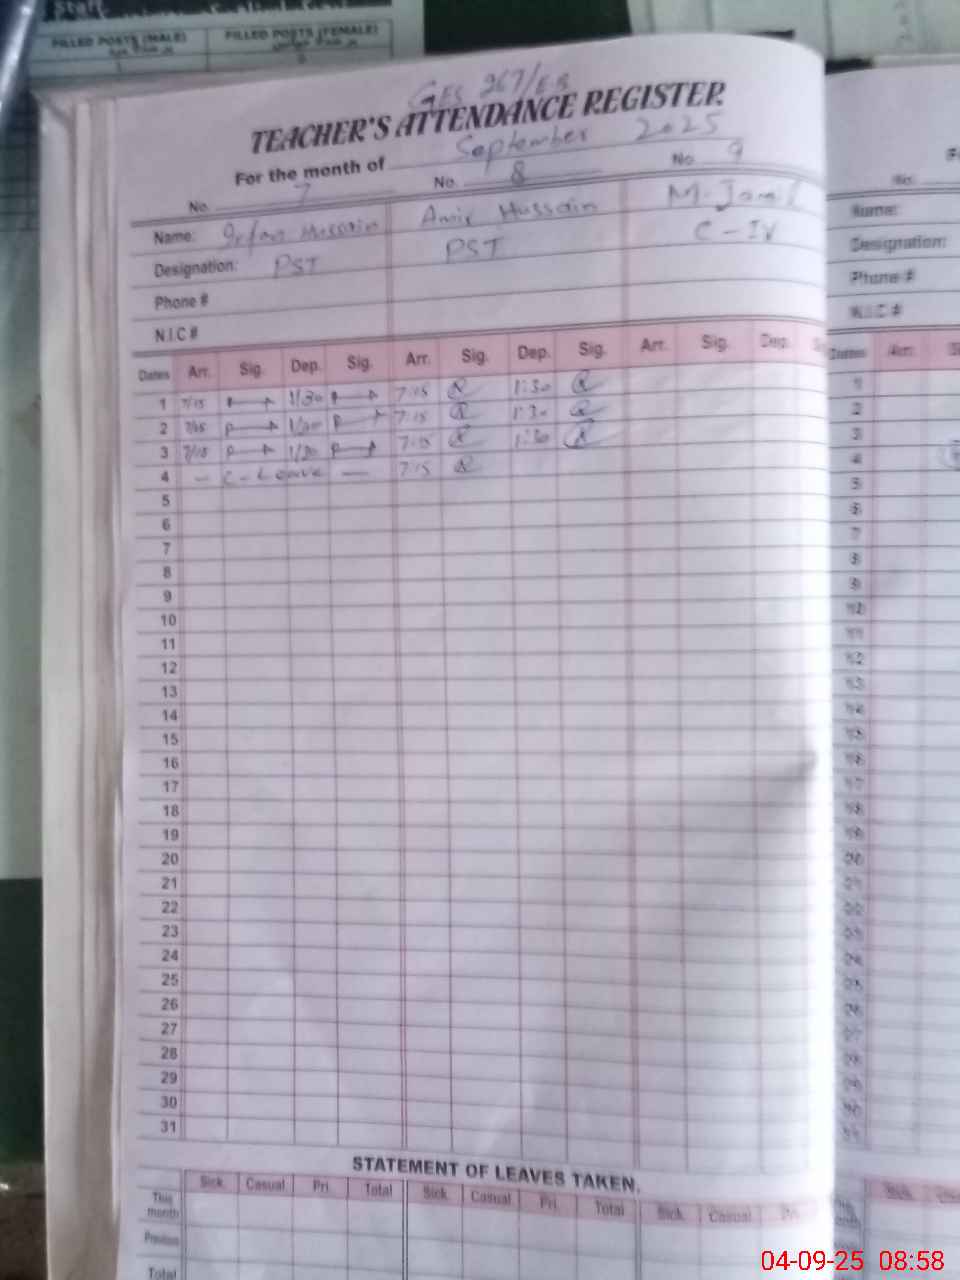 Staff
FILLED POSTS (MALE) FILLED POSTS (FEMALE)
GES 267/EB
TEACHER'S ATTENDANCE REGISTER.
For the month of September 2025
No. 7 No. 8 No. 9
Name: Irfan Hussain Amir Hussain M. Jamil
Designation: PST PST C-IV
Phone #
N.I.C #
Dates Arr. Sig. Dep. Sig. Arr. Sig. Dep. Sig. Arr. Sig. Dep.
1 7/15 P 1/30 P 7:15 1:30
2 7/15 P 1/30 P 7:15 1:30
3 7/15 P 1/30 P 7:15 1:30
4 - C-Leave - 7:15
5
6
7
8
9
10
11
12
13
14
15
16
17
18
19
20
21
22
23
24
25
26
27
28
29
30
31
STATEMENT OF LEAVES TAKEN.
Sick. Casual Pri. Total Sick. Casual Pri. Total Sick. Casual Pri.
This month
Previous
Total
Name:
Designation:
Phone #
N.I.C #
Dates Arr.
04-09-25 08:58